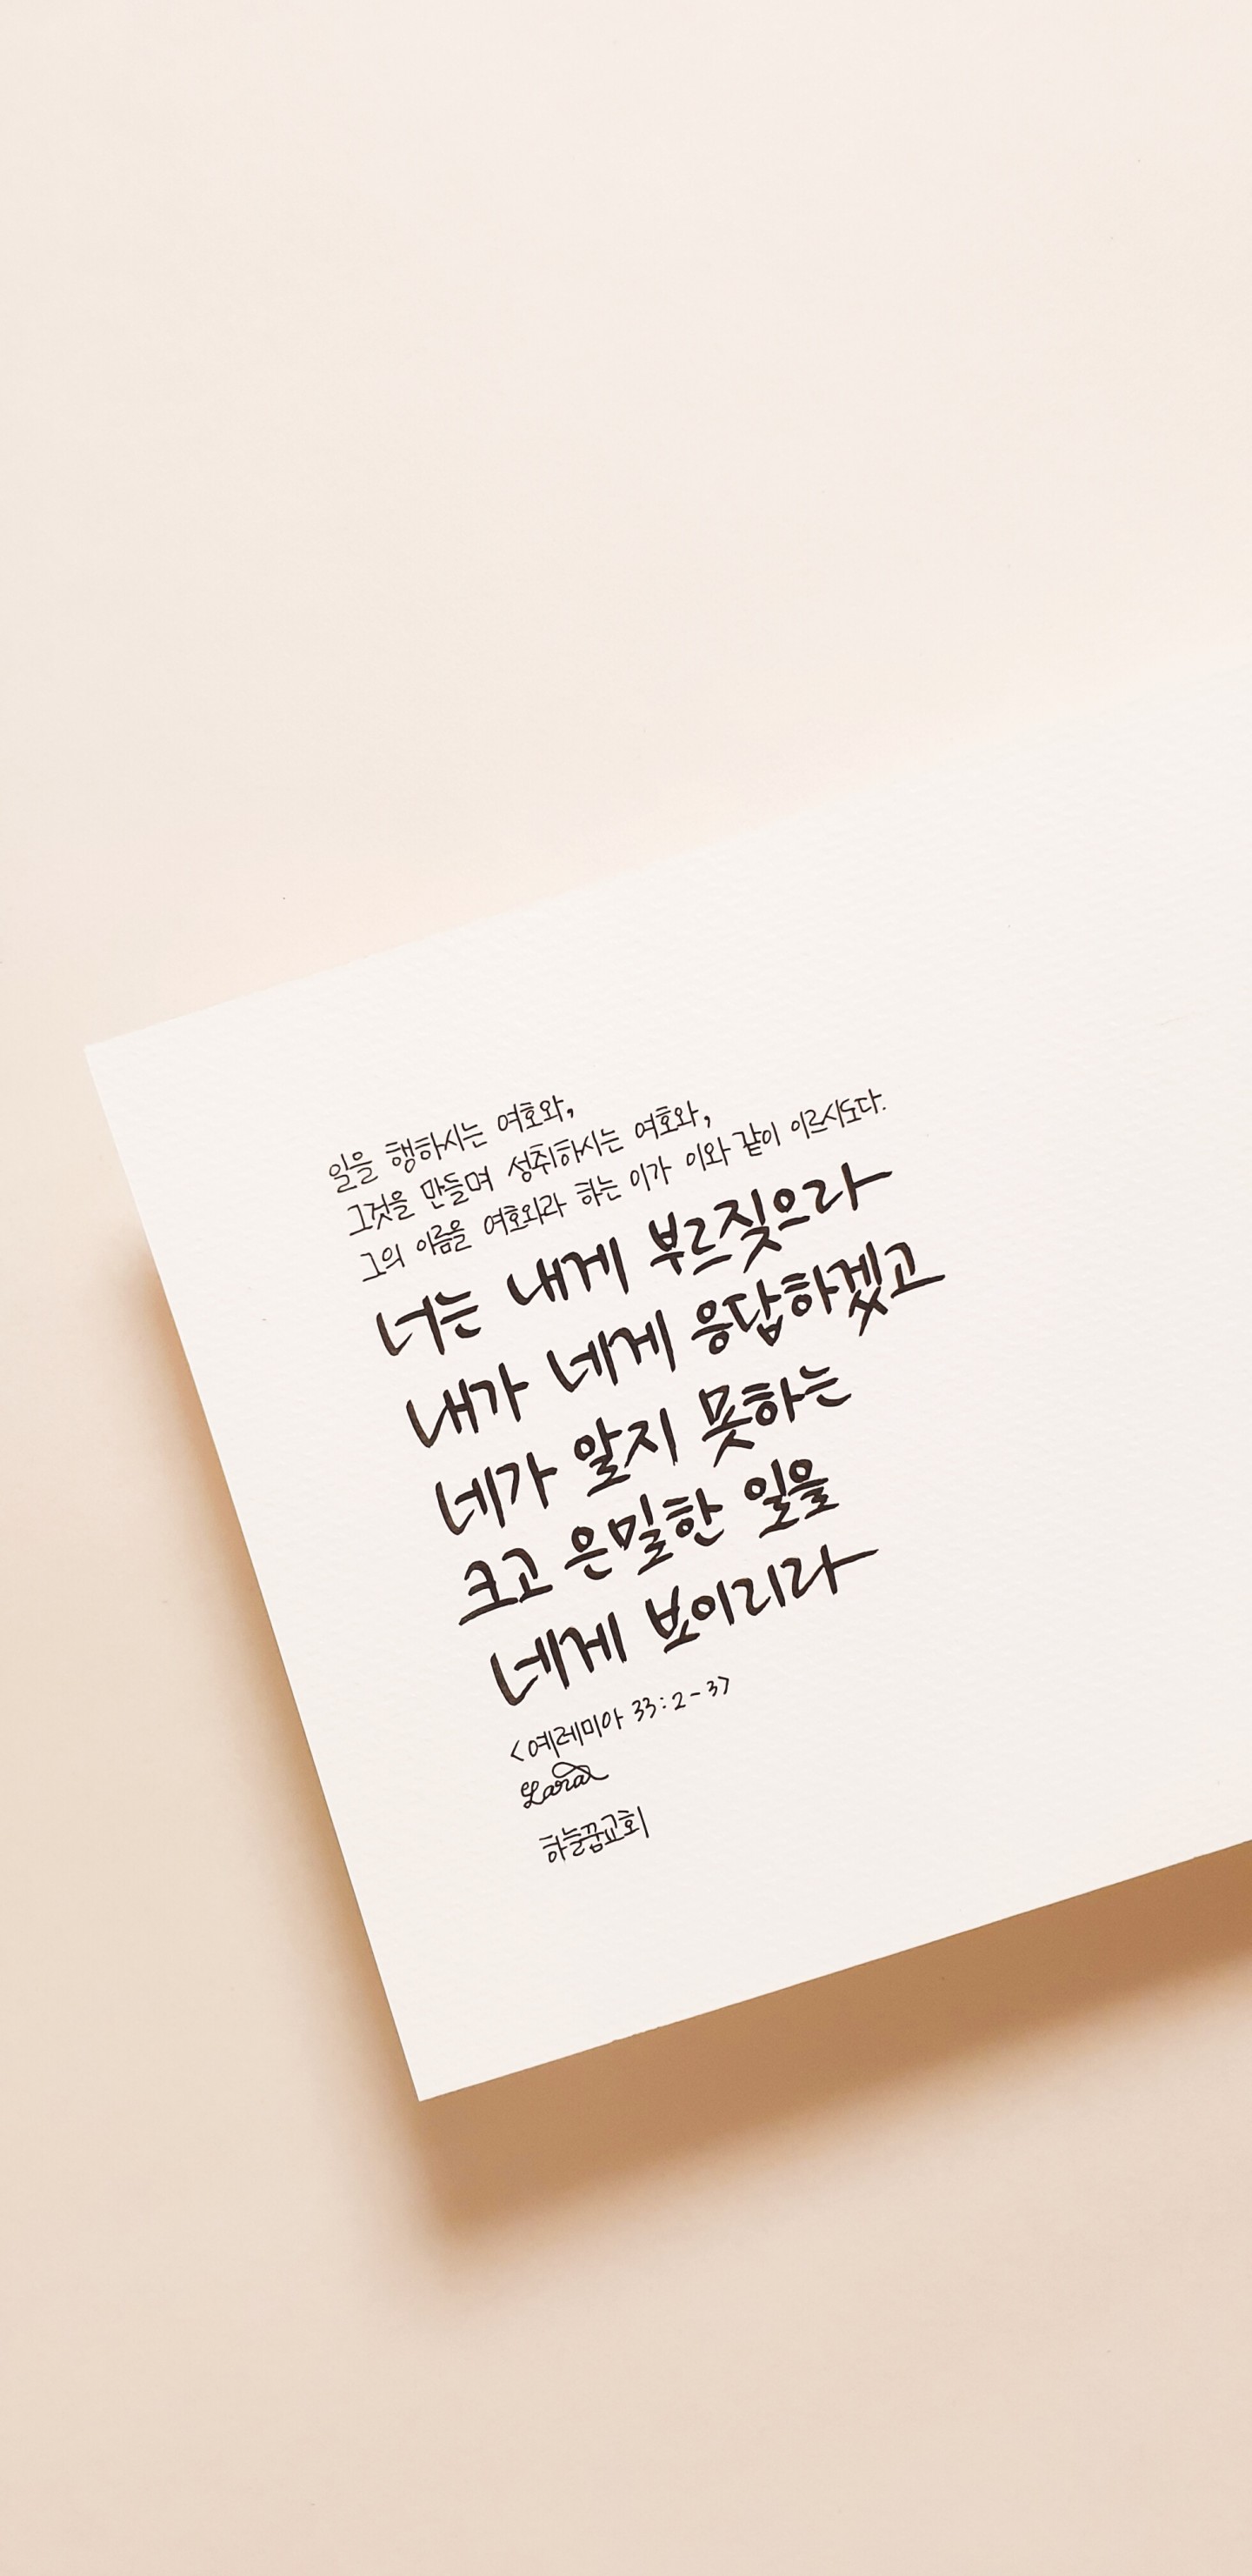 일을 행하시는 여호와,
그것을 만들며 성취하시는 여호와,
그의 이름을 여호와라 하는 이가 이와 같이 이르시도다.
너는 내게 부르짖으라
내가 네게 응답하겠고
네가 알지 못하는
크고 은밀한 일을
네게 보이리라
<예레미야 33:2-3>
Lara
하늘꿈교회